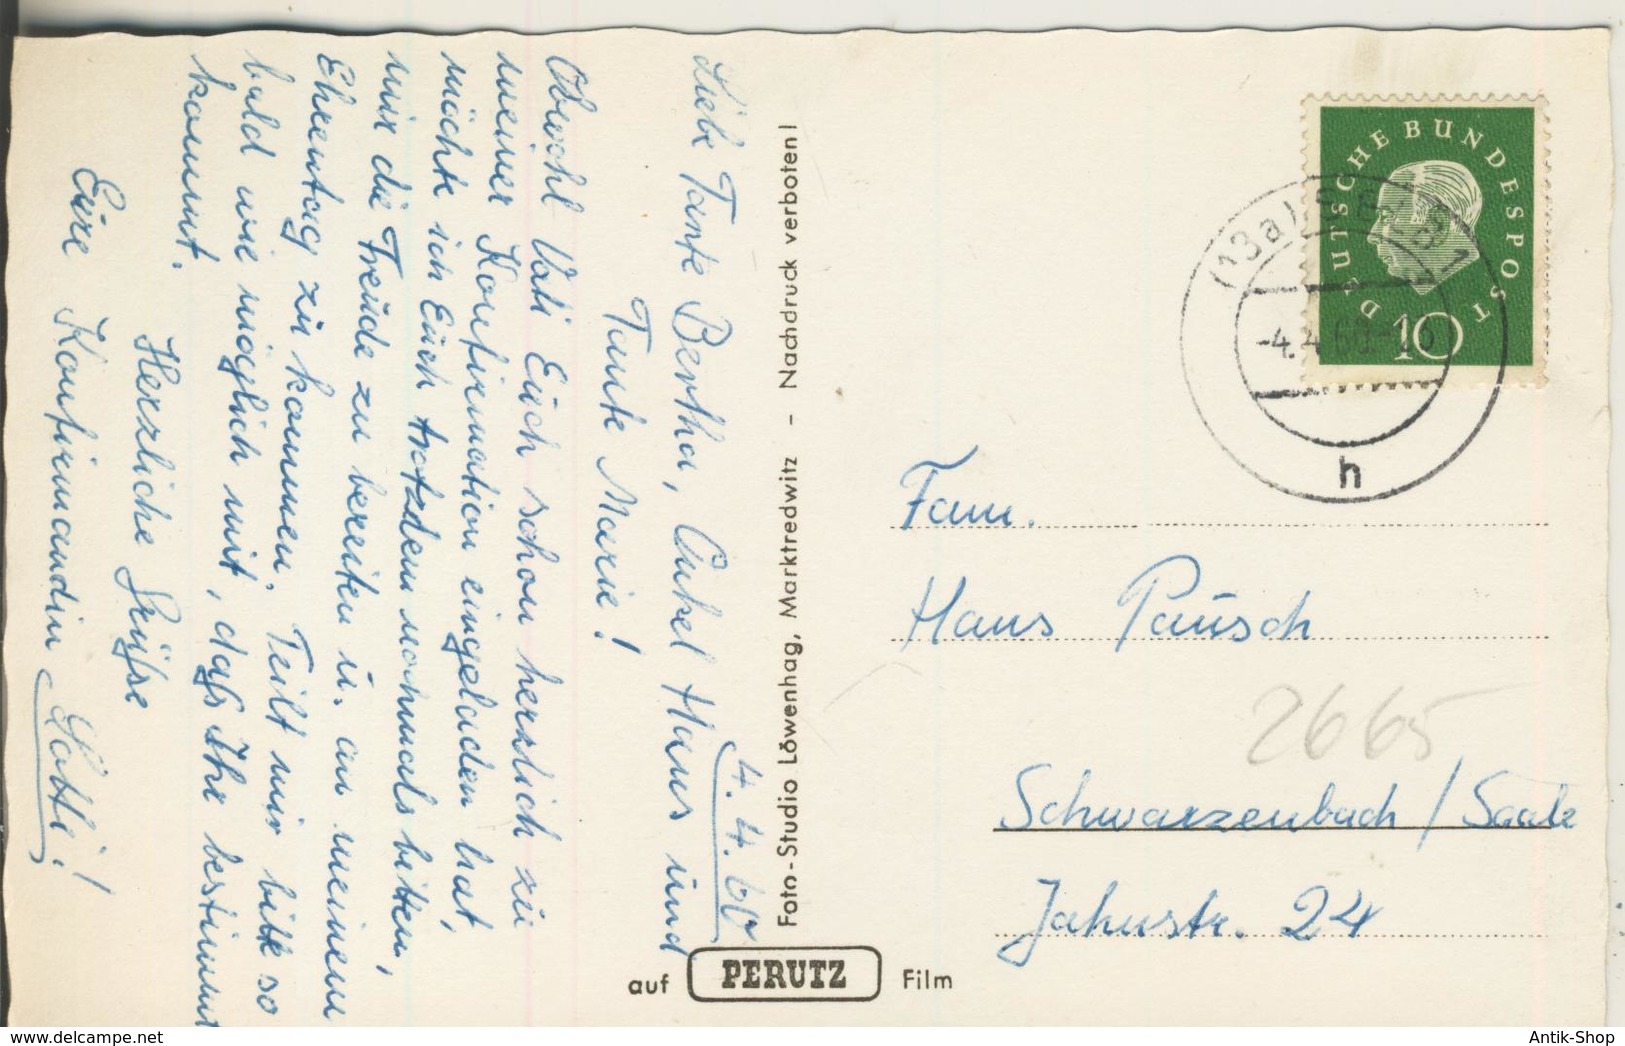 4. 4. 60.
Liebe Tante Bertha, Onkel Hans und
Tante Marie!
Obwohl Vati Euch schon herzlich zu
meiner Konfirmation eingeladen hat,
möchte ich Euch trotzdem nochmals bitten,
mir die Freude zu bereiten u. an meinem
Ehrentag zu kommen. Teilt mir bitte so
bald wie möglich mit, daß Ihr bestimmt
kommt.
Herzliche Grüße
Eure Konfirmandin Lotti!
Foto-Studio Löwenhag, Marktredwitz - Nachdruck verboten!
auf PERUTZ Film
DEUTSCHE BUNDESPOST
10
(13a)
-4.4.60-
h
Fam.
Hans Pausch
2665
Schwarzenbach / Saale
Jahnstr. 24
Antik-Shop